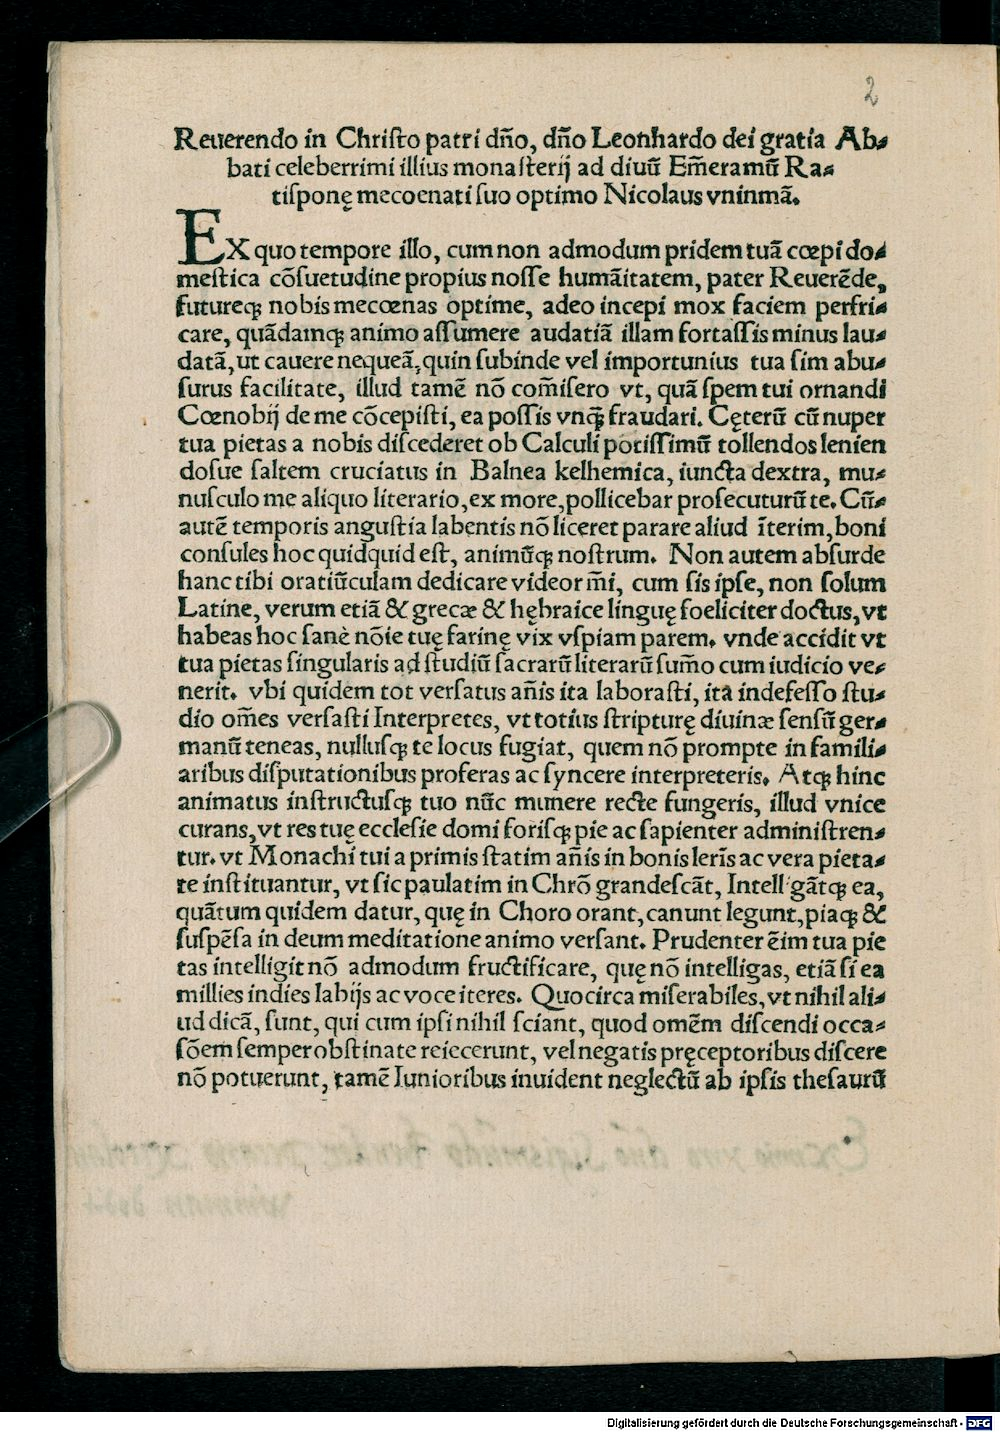 2
Reuerendo in Christo patri dño, dño Leonhardo dei gratia Ab⸗
bati celeberrimi illius monasterij ad diuū Em̄eramū Ra⸗
tisponę mecoenati suo optimo Nicolaus vninmā.
EX quo tempore illo, cum non admodum pridem tuā cœpi do⸗
mestica cōsuetudine propius nosse humāitatem, pater Reuerēde,
futureq; nobis mecœnas optime, adeo incepi mox faciem perfri⸗
care, quādamq; animo assumere audatiā illam fortassis minus lau⸗
datā, ut cauere nequeā, quin subinde vel importunius tua sim abu⸗
surus facilitate, illud tamē nō com̄isero vt, quā spem tui ornandi
Cœnobij de me cōcepisti, ea possis vnq̄; fraudari. Cęterū cū nuper
tua pietas a nobis discederet ob Calculi potissimū tollendos lenien
dosue saltem cruciatus in Balnea kelhemica, iuncta dextra, mu⸗
nusculo me aliquo literario, ex more, pollicebar prosecuturū te. Cū⸗
autē temporis angustia labentis nō liceret parare aliud īterim, boni
consules hoc quidquid est, animūq; nostrum. Non autem absurde
hanc tibi oratiūculam dedicare videor m̄i, cum sis ipse, non solum
Latine, verum etiā & grecæ & hębraice linguę foeliciter doctus, vt
habeas hoc sanè nōie tuę farinę vix vspiam parem. vnde accidit vt
tua pietas singularis ad studiū sacrarū literarū sum̄o cum iudicio ve⸗
nerit. vbi quidem tot versatus añis ita laborasti, ita indefesso stu⸗
dio om̄es versasti Interpretes, vt totius scripturę diuinæ sensū ger⸗
manū teneas, nullusq; te locus fugiat, quem nō prompte in famili⸗
aribus disputationibus proferas ac syncere interpreteris. Atq; hinc
animatus instructusq; tuo nūc munere recte fungeris, illud vnice
curans, vt res tuę ecclesie domi forisq; pie ac sapienter administren⸗
tur. vt Monachi tui a primis statim añis in bonis leris̄ ac vera pieta⸗
te instituantur, vt sic paulatim in Chrō grandescāt, Intell gātq; ea,
quātum quidem datur, quę in Choro orant, canunt legunt, piaq; &
suspēsa in deum meditatione animo versant. Prudenter ēim tua pie
tas intelligit nō admodum fructificare, quę nō intelligas, etiā si ea
millies indies labijs ac voce iteres. Quocirca miserabiles, vt nihil ali⸗
ud dicā, sunt, qui cum ipsi nihil sciant, quod omēm discendi occa⸗
sōem semper obstinate reiecerunt, vel negatis pręceptoribus discere
nō potuerunt, tamē Iunioribus inuident neglectū ab ipsis thesaurū
Digitalisierung gefördert durch die Deutsche Forschungsgemeinschaft - DFG